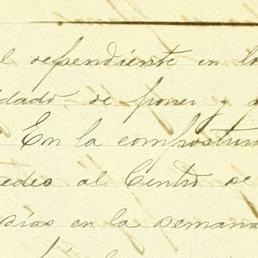 l dependiente en lo
idado de poner y a
En la compostur
edes al Centro de
dias en la semana